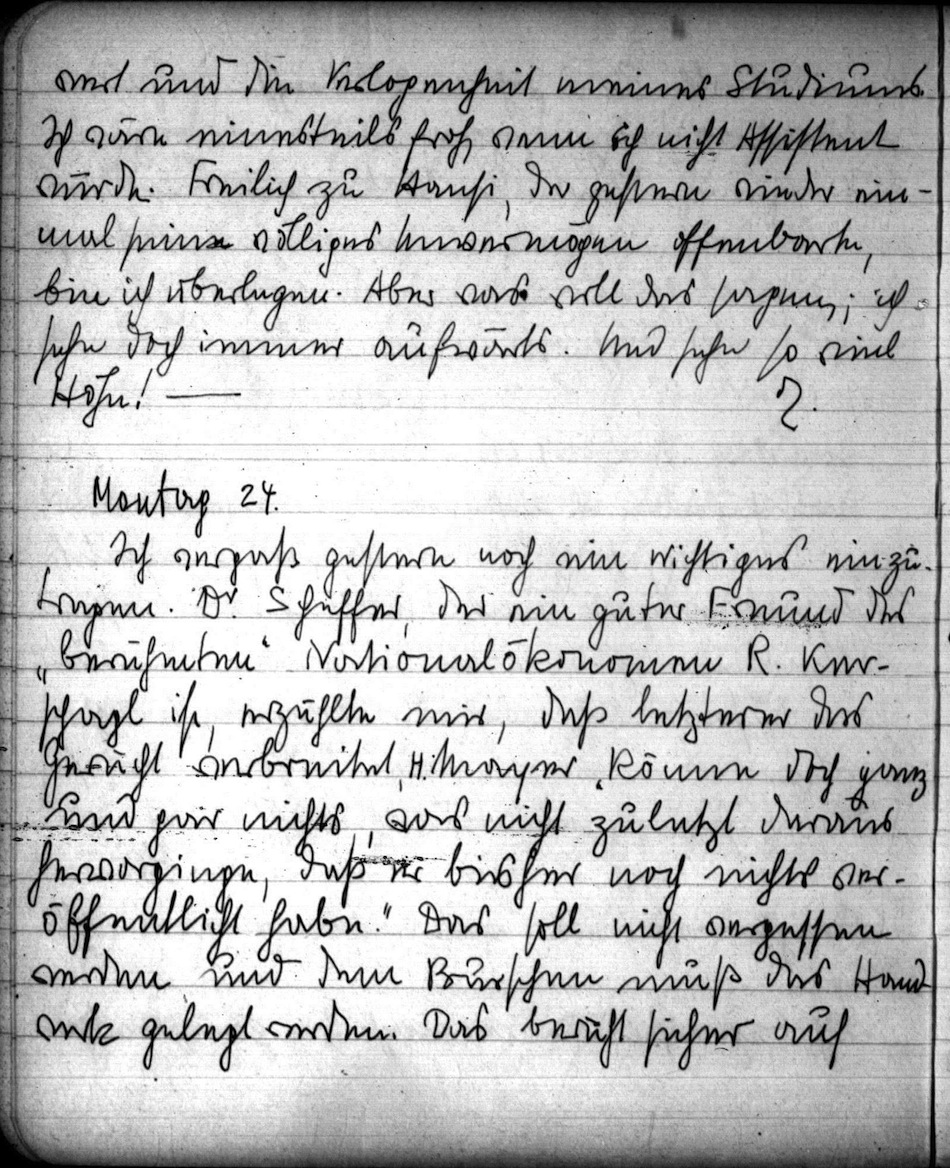 wert und die Verlogenheit meines Studiums.
Ich wäre einesteils froh, wenn ich nicht Assistent
würde. Freilich zu Hansi, der gestern wieder ein-
mal seine völliges Unvermögen offenbarte,
bin ich überlegen. Aber was soll das sagen; ich
sehe doch immer aufwärts. Und sehe so viel
Höhe! —
Montag 24.
Ich vergaß gestern noch ein wichtiges einzu-
tragen. Dr. Scheffer, der ein guter Freund des
„berühmten“ Nationalökonomen R. Ker-
schagl ist, erzählte mir, daß letzterer das
Gerücht verbreitet, H. Mayer „könne doch ganz
und gar nichts, was nicht zuletzt daraus
hervorginge, daß er bisher noch nichts ver-
öffentlicht habe.“ Das soll nicht vergessen
werden und dem Burschen muß das Hand
werk gelegt werden. Das beruht sicher auf